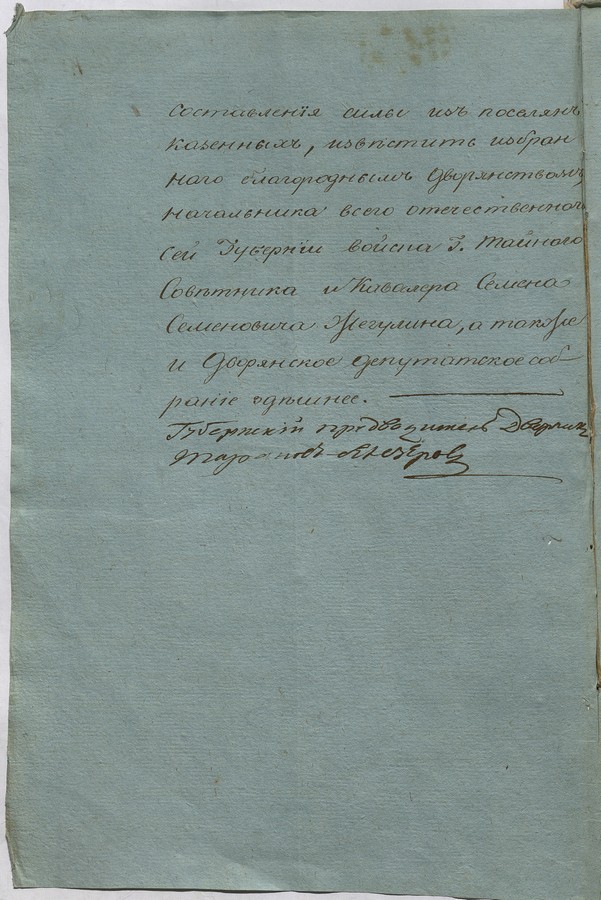 составленія силы изъ поселянъ
казенныхъ, извѣстить избран
наго благороднымъ дворянствомъ
начальника всего отечественнаго
сей Губерніи войска Г. Тайнаго
Совѣтника и Кавалера Семена
Семеновича Жегулина, а также
и Дворянское депутатское соб-
раніе здѣшнее.
Губернскій предводитель Дворянс